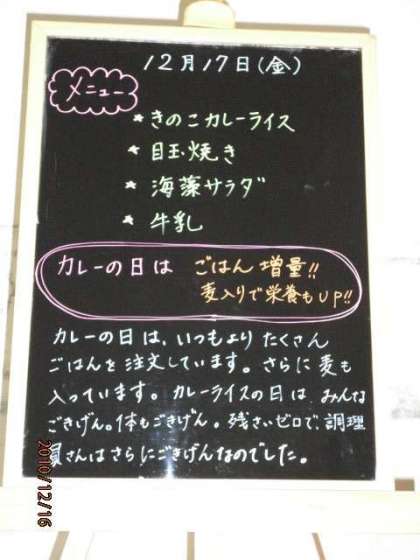 12月17日(金)
メニュー
* きのこカレーライス
* 目玉焼き
* 海藻サラダ
* 牛乳
カレーの日は ごはん増量!!
麦入りで栄養もUP!!
カレーの日は、いつもより たくさん
ごはんを注文しています。さらに麦も
入っています。カレーライスの日は、みんな
ごきげん。体もごきげん。残さいゼロで、調理
員さんはさらにごきげんなのでした。
2010/12/16